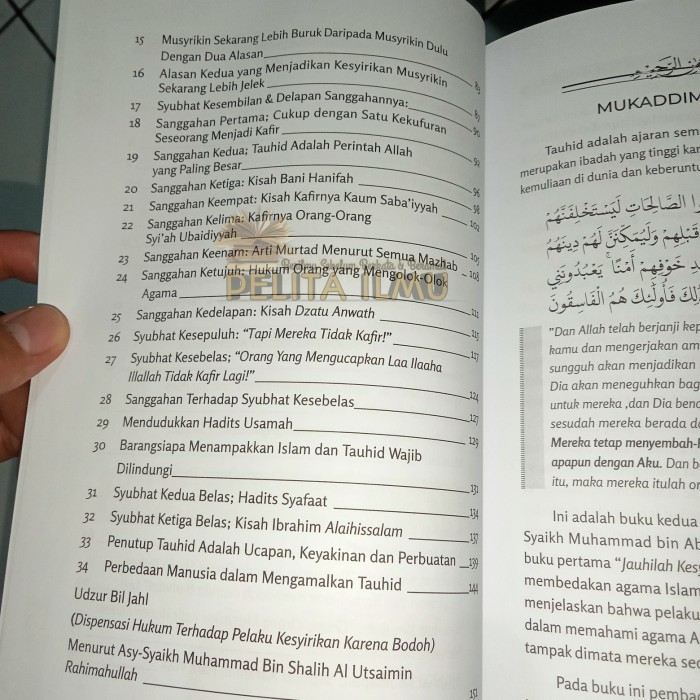 15 Musyrikin Sekarang Lebih Buruk Daripada Musyrikin Dulu
Dengan Dua Alasan 83
16 Alasan Kedua yang Menjadikan Kesyirikan Musyrikin
Sekarang Lebih Jelek 87
17 Syubhat Kesembilan & Delapan Sanggahannya: 90
18 Sanggahan Pertama; Cukup dengan Satu Kekufuran
Seseorang Menjadi Kafir 92
19 Sanggahan Kedua; Tauhid Adalah Perintah Allah
yang Paling Besar 96
20 Sanggahan Ketiga: Kisah Bani Hanifah 98
21 Sanggahan Keempat: Kisah Kafirnya Kaum Saba'iyyah 102
22 Sanggahan Kelima: Kafirnya Orang-Orang
Syi'ah Ubaidiyyah 105
23 Sanggahan Keenam: Arti Murtad Menurut Semua Mazhab 108
24 Sanggahan Ketujuh: Hukum Orang yang Mengolok-Olok
Agama 111
25 Sanggahan Kedelapan: Kisah Dzatu Anwath 115
26 Syubhat Kesepuluh: "Tapi Mereka Tidak Kafir!" 117
27 Syubhat Kesebelas; "Orang Yang Mengucapkan Laa Ilaaha
Illallah Tidak Kafir Lagi!" 124
28 Sanggahan Terhadap Syubhat Kesebelas 127
29 Mendudukkan Hadits Usamah 129
30 Barangsiapa Menampakkan Islam dan Tauhid Wajib
Dilindungi 131
31 Syubhat Kedua Belas; Hadits Syafaat 134
32 Syubhat Ketiga Belas; Kisah Ibrahim Alaihissalam 137
33 Penutup Tauhid Adalah Ucapan, Keyakinan dan Perbuatan 139
34 Perbedaan Manusia dalam Mengamalkan Tauhid 144
Udzur Bil Jahl
(Dispensasi Hukum Terhadap Pelaku Kesyirikan Karena Bodoh)
Menurut Asy-Syaikh Muhammad Bin Shalih Al Utsaimin
Rahimahullah 151
PELITA ILMU
MUKADDIM
Tauhid adalah ajaran sem
merupakan ibadah yang tinggi kar
kemuliaan di dunia dan keberuntu
الصَّالِحَاتِ لَيَسْتَخْلِفَنَّهُمْ
قَبْلِهِمْ وَلَيُمَكِّنَنَّ لَهُمْ دِينَهُمُ
خَوْفِهِمْ أَمْنًا يَعْبُدُونَنِي
فَأُولَئِكَ هُمُ الْفَاسِقُونَ
"Dan Allah telah berjanji kep
kamu dan mengerjakan am
sungguh akan menjadikan
Dia akan meneguhkan bag
untuk mereka ,dan Dia benc
sesudah mereka berada d
Mereka tetap menyembah-
apapun dengan Aku. Dan b
itu, maka mereka itulah or
Ini adalah buku kedua
Syaikh Muhammad bin Ab
buku pertama "Jauhilah Kesy
membedakan agama Islam
menjelaskan bahwa pelaku
dalam memahami agama A
tampak dimata mereka sec
Pada buku ini pembah